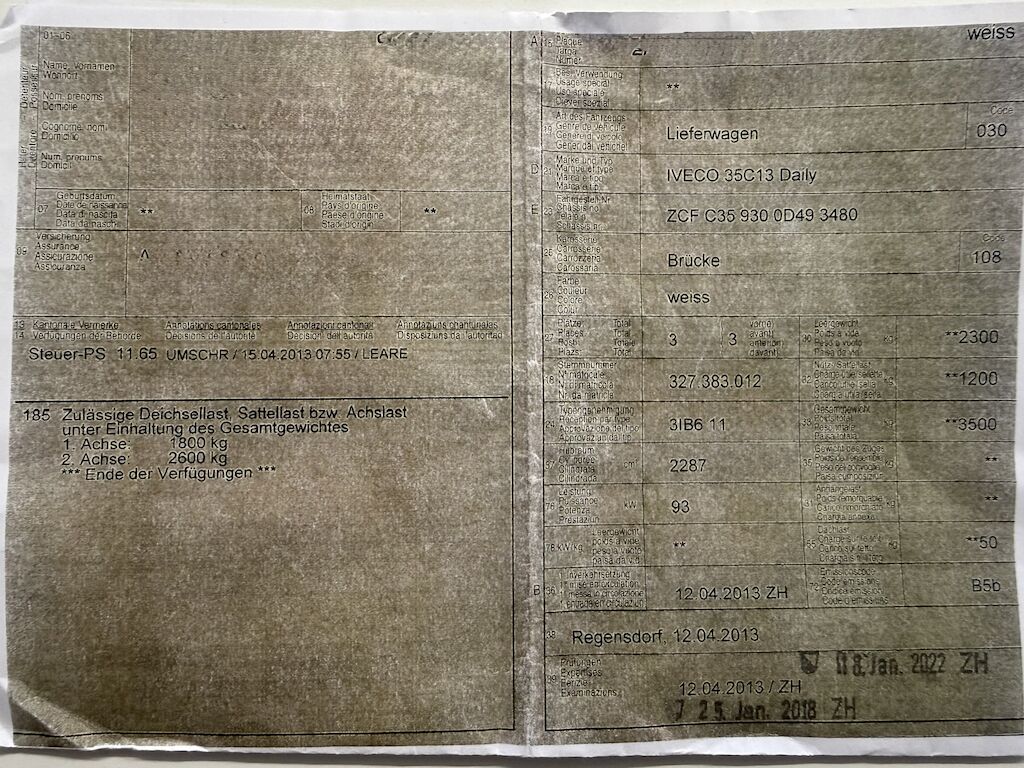 01-06
Name, Vornamen
Wohnort
Nom, prénoms
Domicile
Cognome, nomi
Domicilio
Num, prenums
Domicil
07 Geburtsdatum
Date de naissance
Data di nascita
Data da nasch.
**
08 Heimatstaat
Pays d'origine
Paese d'origine
Stadi d'origin
**
09 Versicherung
Assurance
Assicurazione
Assicuranza
13 Kantonale Vermerke Annotations cantonales Annotazioni cantonali Annotaziuns chantunalas
14 Verfügungen der Behörde Décisions de l'autorité Decisioni dell'autorità Disposiziuns da l'autoritad
Steuer-PS 11.65 UMSCHR / 15.04.2013 07:55 / LEARE
185 Zulässige Deichsellast, Sattellast bzw. Achslast
unter Einhaltung des Gesamtgewichtes
1. Achse: 1800 kg
2. Achse: 2600 kg
*** Ende der Verfügungen ***
A 15
Plaque
Targa
Numer
weiss
17 Bes. Verwendung
Usage spécial
Uso speciale
Diever spezial
**
19 Art des Fahrzeugs
Genre de véhicule
Genere di veicolo
Gener dal vehichel
Lieferwagen
Code
030
D 21 Marke und Typ
Marque et type
Marca e tipo
Marca e tip
IVECO 35C13 Daily
E 23 Fahrgestell-Nr.
Châssis no
Telaio n.
Schassis nr.
ZCF C35 930 0D49 3480
25 Karosserie
Carrosserie
Carrozzeria
Carossaria
Brücke
Code
108
26 Farbe
Couleur
Colore
Colur
weiss
27 Plätze Total
Places Total
Posti Totale
Plazs Total
3
vorne
avant
anteriori
davant
3
30 Leergewicht
Poids à vide
Peso a vuoto
Paisa da vid
kg
**2300
18 Stammnummer
N° matricule
N. di matricola
Nr. da matricla
327.383.012
32 Nutz-/Sattellast
kg
**1200
24 Typengenehmigung
Réception par type
Approvazione del tipo
Approvaziun dal tip
3IB6 11
33 Gesamtgewicht
Poids total
Peso totale
Paisa totala
kg
**3500
37 Hubraum
Cylindrée
Cilindrata
Cilindrada
cm³
2287
35 Gewicht des Zuges
kg
**
76 Leistung
Puissance
Potenza
Prestaziun
kW
93
31 Anhängelast
Poids remorquable
kg
**
78 kW/kg
Leergewicht
poids à vide
peso a vuoto
paisa da vid
**
55 Dachlast
kg
**50
B 36 1. Inverkehrsetzung
1re mise en circulation
1a messa in circolazione
12.04.2013 ZH
72 Emissionscode
Code émissions
Codice emissioni
Code d'emissiuns
B5b
38 Regensdorf, 12.04.2013
39 Prüfungen
Expertises
Perizie
Examinaziuns
12.04.2013 / ZH
18. Jan. 2022 ZH
25. Jan. 2018 ZH